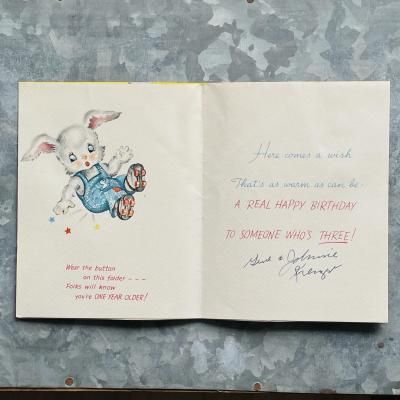 Wear the button
on this folder - - -
Folks will know
you're ONE YEAR OLDER!
Here comes a wish
That's as warm as can be -
A REAL HAPPY BIRTHDAY
TO SOMEONE WHO'S THREE!
& Johnnie